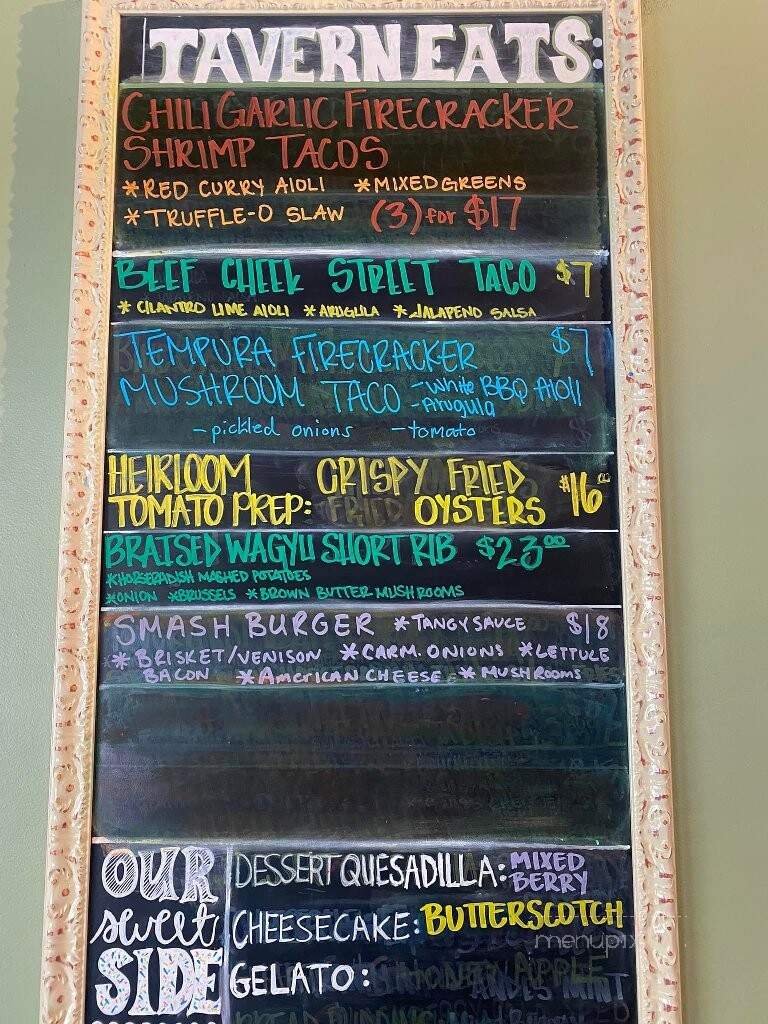 TAVERN EATS:
CHILI GARLIC FIRECRACKER
SHRIMP TACOS
*RED CURRY AIOLI *MIXED GREENS
*TRUFFLE-O SLAW (3) for $17
BEEF CHEEK STREET TACO $7
* CILANTRO LIME AIOLI *ARUGULA *JALAPENO SALSA
TEMPURA FIRECRACKER $7
MUSHROOM TACO -White BBQ AIOLI
-Arugula
-pickled onions -tomato
HEIRLOOM CRISPY FRIED $16.00
TOMATO PREP: FRIED OYSTERS
BRAISED WAGYU SHORT RIB $23.00
*HORSERADISH MASHED POTATOES
*ONION *BRUSSELS *BROWN BUTTER MUSHROOMS
SMASH BURGER *TANGY SAUCE $18
*BRISKET/VENISON *CARM. ONIONS *LETTUCE
BACON *AMERICAN CHEESE *MUSHROOMS
OUR sweet SIDE
DESSERT QUESADILLA: MIXED BERRY
CHEESECAKE: BUTTERSCOTCH
GELATO:
menupix